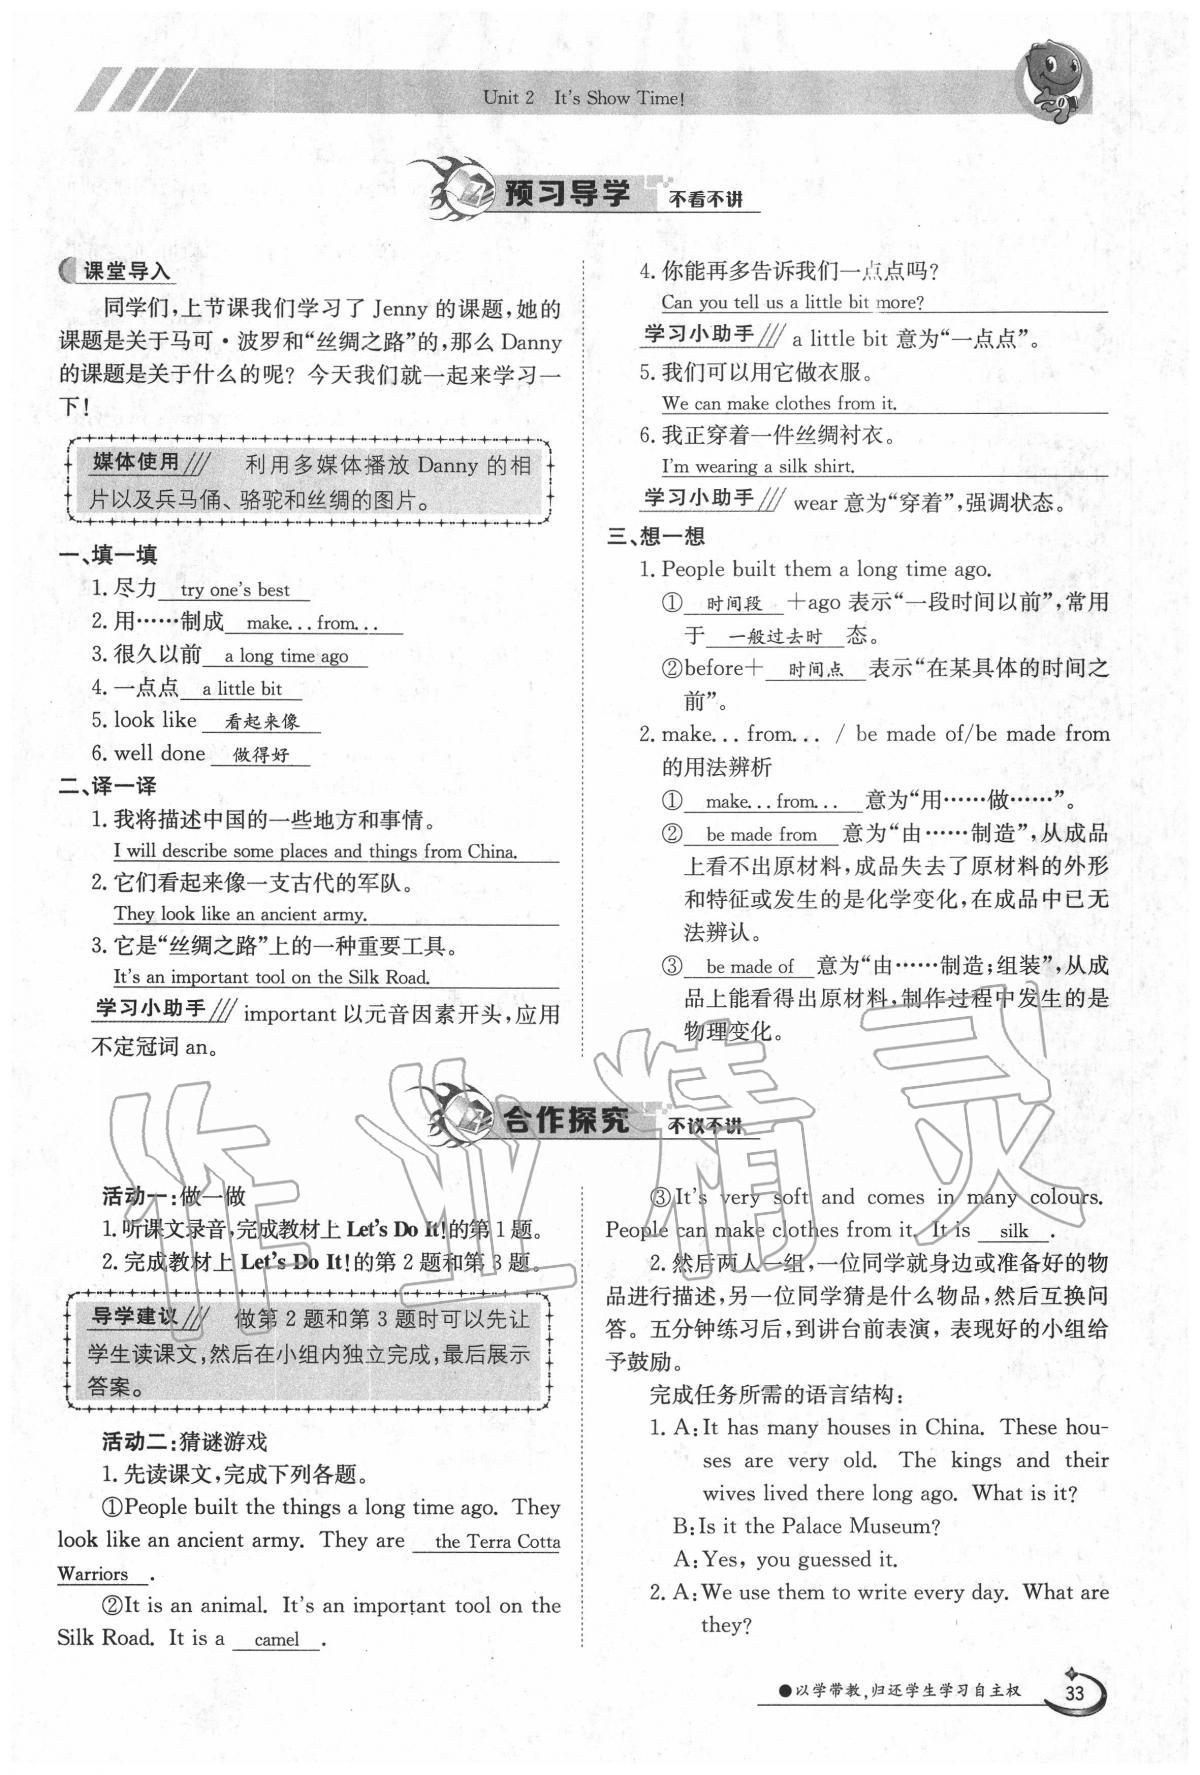 Unit 2 It's Show Time!
预习导学 不看不讲
课堂导入
同学们,上节课我们学习了 Jenny 的课题,她的
课题是关于马可·波罗和“丝绸之路”的,那么 Danny
的课题是关于什么的呢? 今天我们就一起来学习一
下!
媒体使用/// 利用多媒体播放 Danny 的相
片以及兵马俑、骆驼和丝绸的图片。
一、填一填
1. 尽力 try one's best
2. 用……制成 make...from...
3. 很久以前 a long time ago
4. 一点点 a little bit
5. look like 看起来像
6. well done 做得好
二、译一译
1. 我将描述中国的一些地方和事情。
I will describe some places and things from China.
2. 它们看起来像一支古代的军队。
They look like an ancient army.
3. 它是“丝绸之路”上的一种重要工具。
It's an important tool on the Silk Road.
学习小助手/// important 以元音因素开头,应用
不定冠词 an。
4. 你能再多告诉我们一点点吗?
Can you tell us a little bit more?
学习小助手/// a little bit 意为“一点点”。
5. 我们可以用它做衣服。
We can make clothes from it.
6. 我正穿着一件丝绸衬衣。
I'm wearing a silk shirt.
学习小助手/// wear 意为“穿着”,强调状态。
三、想一想
1. People built them a long time ago.
① 时间段 +ago 表示“一段时间以前”,常用
于 一般过去时 态。
②before+ 时间点 表示“在某具体的时间之
前”。
2. make...from... / be made of/be made from
的用法辨析
① make...from... 意为“用……做……”。
② be made from 意为“由……制造”,从成品
上看不出原材料,成品失去了原材料的外形
和特征或发生的是化学变化,在成品中已无
法辨认。
③ be made of 意为“由……制造;组装”,从成
品上能看得出原材料,制作过程中发生的是
物理变化。
合作探究 不议不讲
活动一:做一做
1. 听课文录音,完成教材上 Let's Do It!的第 1 题。
2. 完成教材上 Let's Do It!的第 2 题和第 3 题。
导学建议/// 做第 2 题和第 3 题时可以先让
学生读课文,然后在小组内独立完成,最后展示
答案。
活动二:猜谜游戏
1. 先读课文,完成下列各题。
①People built the things a long time ago. They
look like an ancient army. They are the Terra Cotta
Warriors .
②It is an animal. It's an important tool on the
Silk Road. It is a camel .
③It's very soft and comes in many colours.
People can make clothes from it. It is silk .
2. 然后两人一组,一位同学就身边或准备好的物
品进行描述,另一位同学猜是什么物品,然后互换问
答。五分钟练习后,到讲台前表演,表现好的小组给
予鼓励。
完成任务所需的语言结构:
1. A:It has many houses in China. These hou-
ses are very old. The kings and their
wives lived there long ago. What is it?
B:Is it the Palace Museum?
A:Yes, you guessed it.
2. A:We use them to write every day. What are
they?
●以学带教,归还学生学习自主权 33
作业精灵